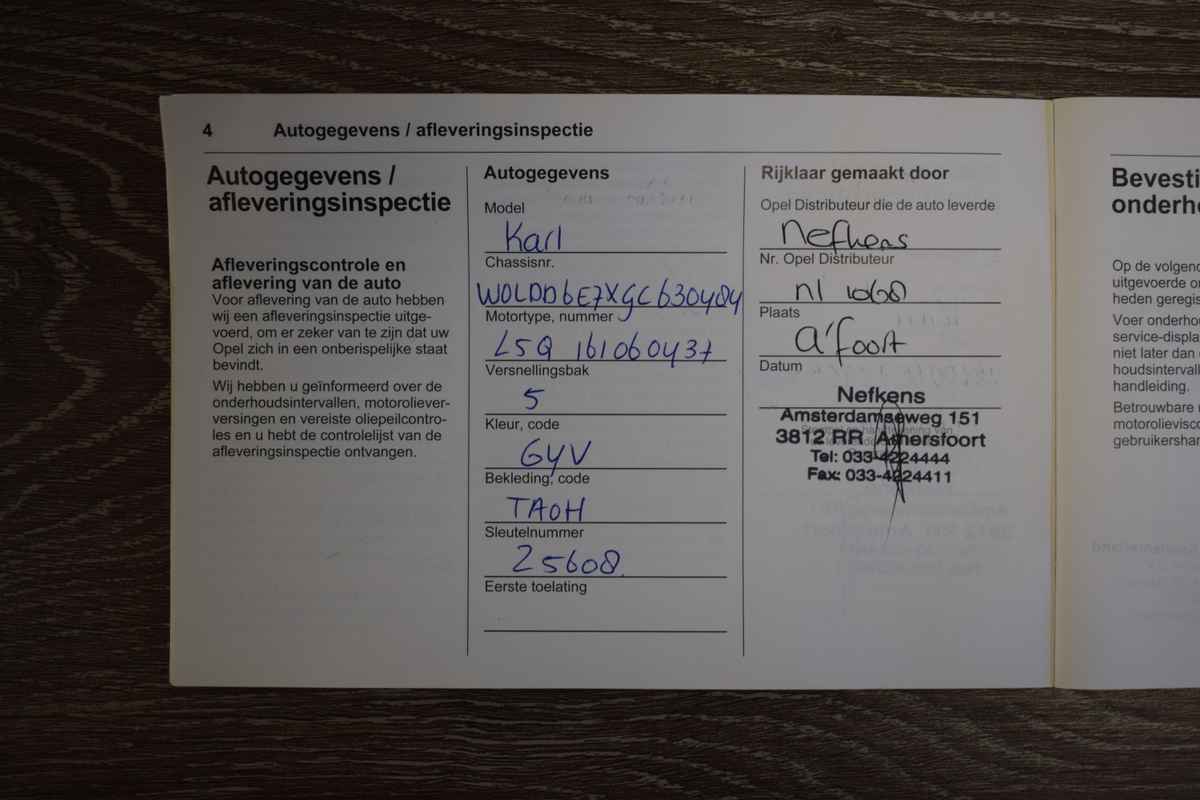 4 Autogegevens / afleveringsinspectie
Autogegevens /
afleveringsinspectie
Afleveringscontrole en
aflevering van de auto
Voor aflevering van de auto hebben
wij een afleveringsinspectie uitge-
voerd, om er zeker van te zijn dat uw
Opel zich in een onberispelijke staat
bevindt.
Wij hebben u geïnformeerd over de
onderhoudsintervallen, motoroliever-
versingen en vereiste oliepeilcontro-
les en u hebt de controlelijst van de
afleveringsinspectie ontvangen.
Autogegevens
Model
Karl
Chassisnr.
WOLDD6E7XGC630484
Motortype, nummer
L5Q 161060437
Versnellingsbak
5
Kleur, code
GYV
Bekleding, code
TAOH
Sleutelnummer
25608
Eerste toelating
Rijklaar gemaakt door
Opel Distributeur die de auto leverde
Nefkens
Nr. Opel Distributeur
nl 1068
Plaats
A'foort
Datum
Nefkens
Amsterdamseweg 151
3812 RR Amersfoort
Tel: 033-4224444
Fax: 033-4224411
Bevesti
onderho
Op de volgend
uitgevoerde on
heden geregis
Voer onderhou
service-displa
niet later dan
houdsintervall
handleiding.
Betrouwbare
motorolievisco
gebruikershan